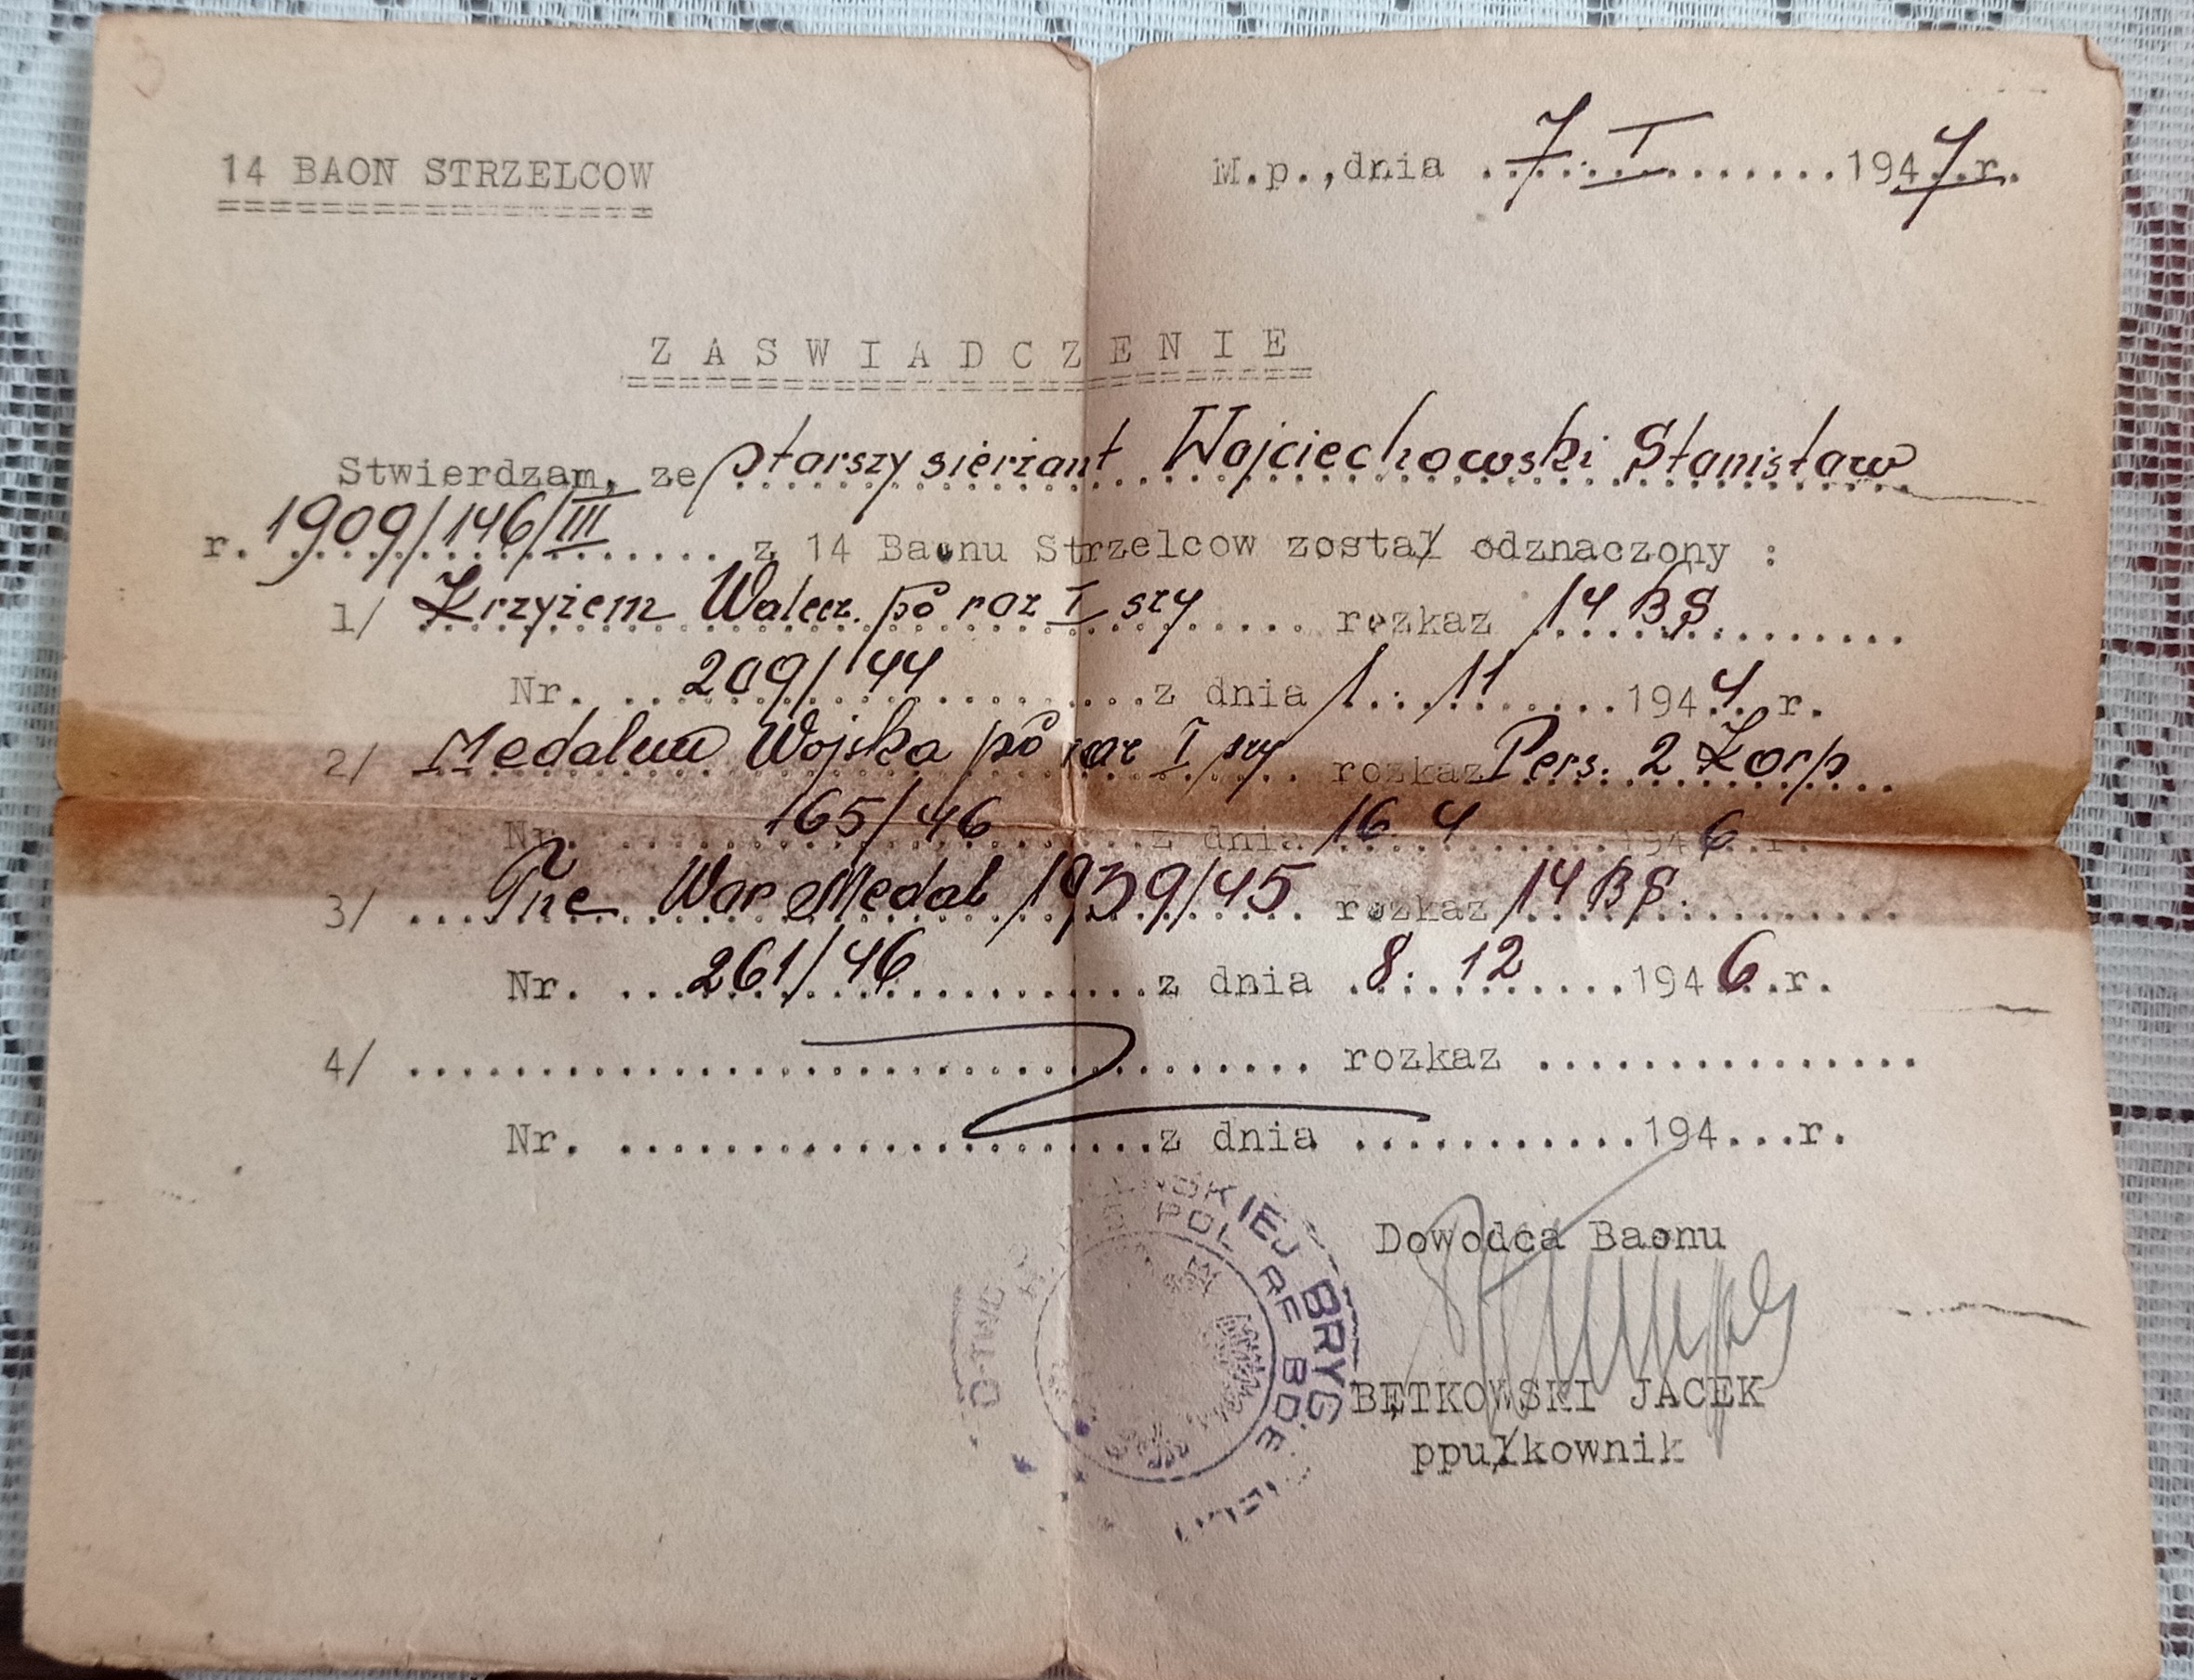 14 BAON STRZELCOW
M.p.,dnia 7. I 1947.r.
ZASWIADCZENIE
Stwierdzam, ze starszy sierżant Wojciechowski Stanisław
r. 1909/146/III z 14 Baonu Strzelcow został odznaczony :
1/ Krzyżem Walecz. po raz I szy rozkaz 14 BS
Nr. 209/44 z dnia 1. 11 1944 r.
2/ Medalem Wojska po raz I szy rozkaz Pers. 2 Korp
Nr. 165/46 z dnia 16 4 1946 r.
3/ The War Medal 1939/45 rozkaz 14 BS.
Nr. 261/46 z dnia 8. 12 1946.r.
4/ rozkaz
Nr. z dnia 194...r.
Dowodca Baonu
BĘTKOWSKI JACEK
ppułkownik
D-TWO SKIEJ BRYG
POL RE BDE